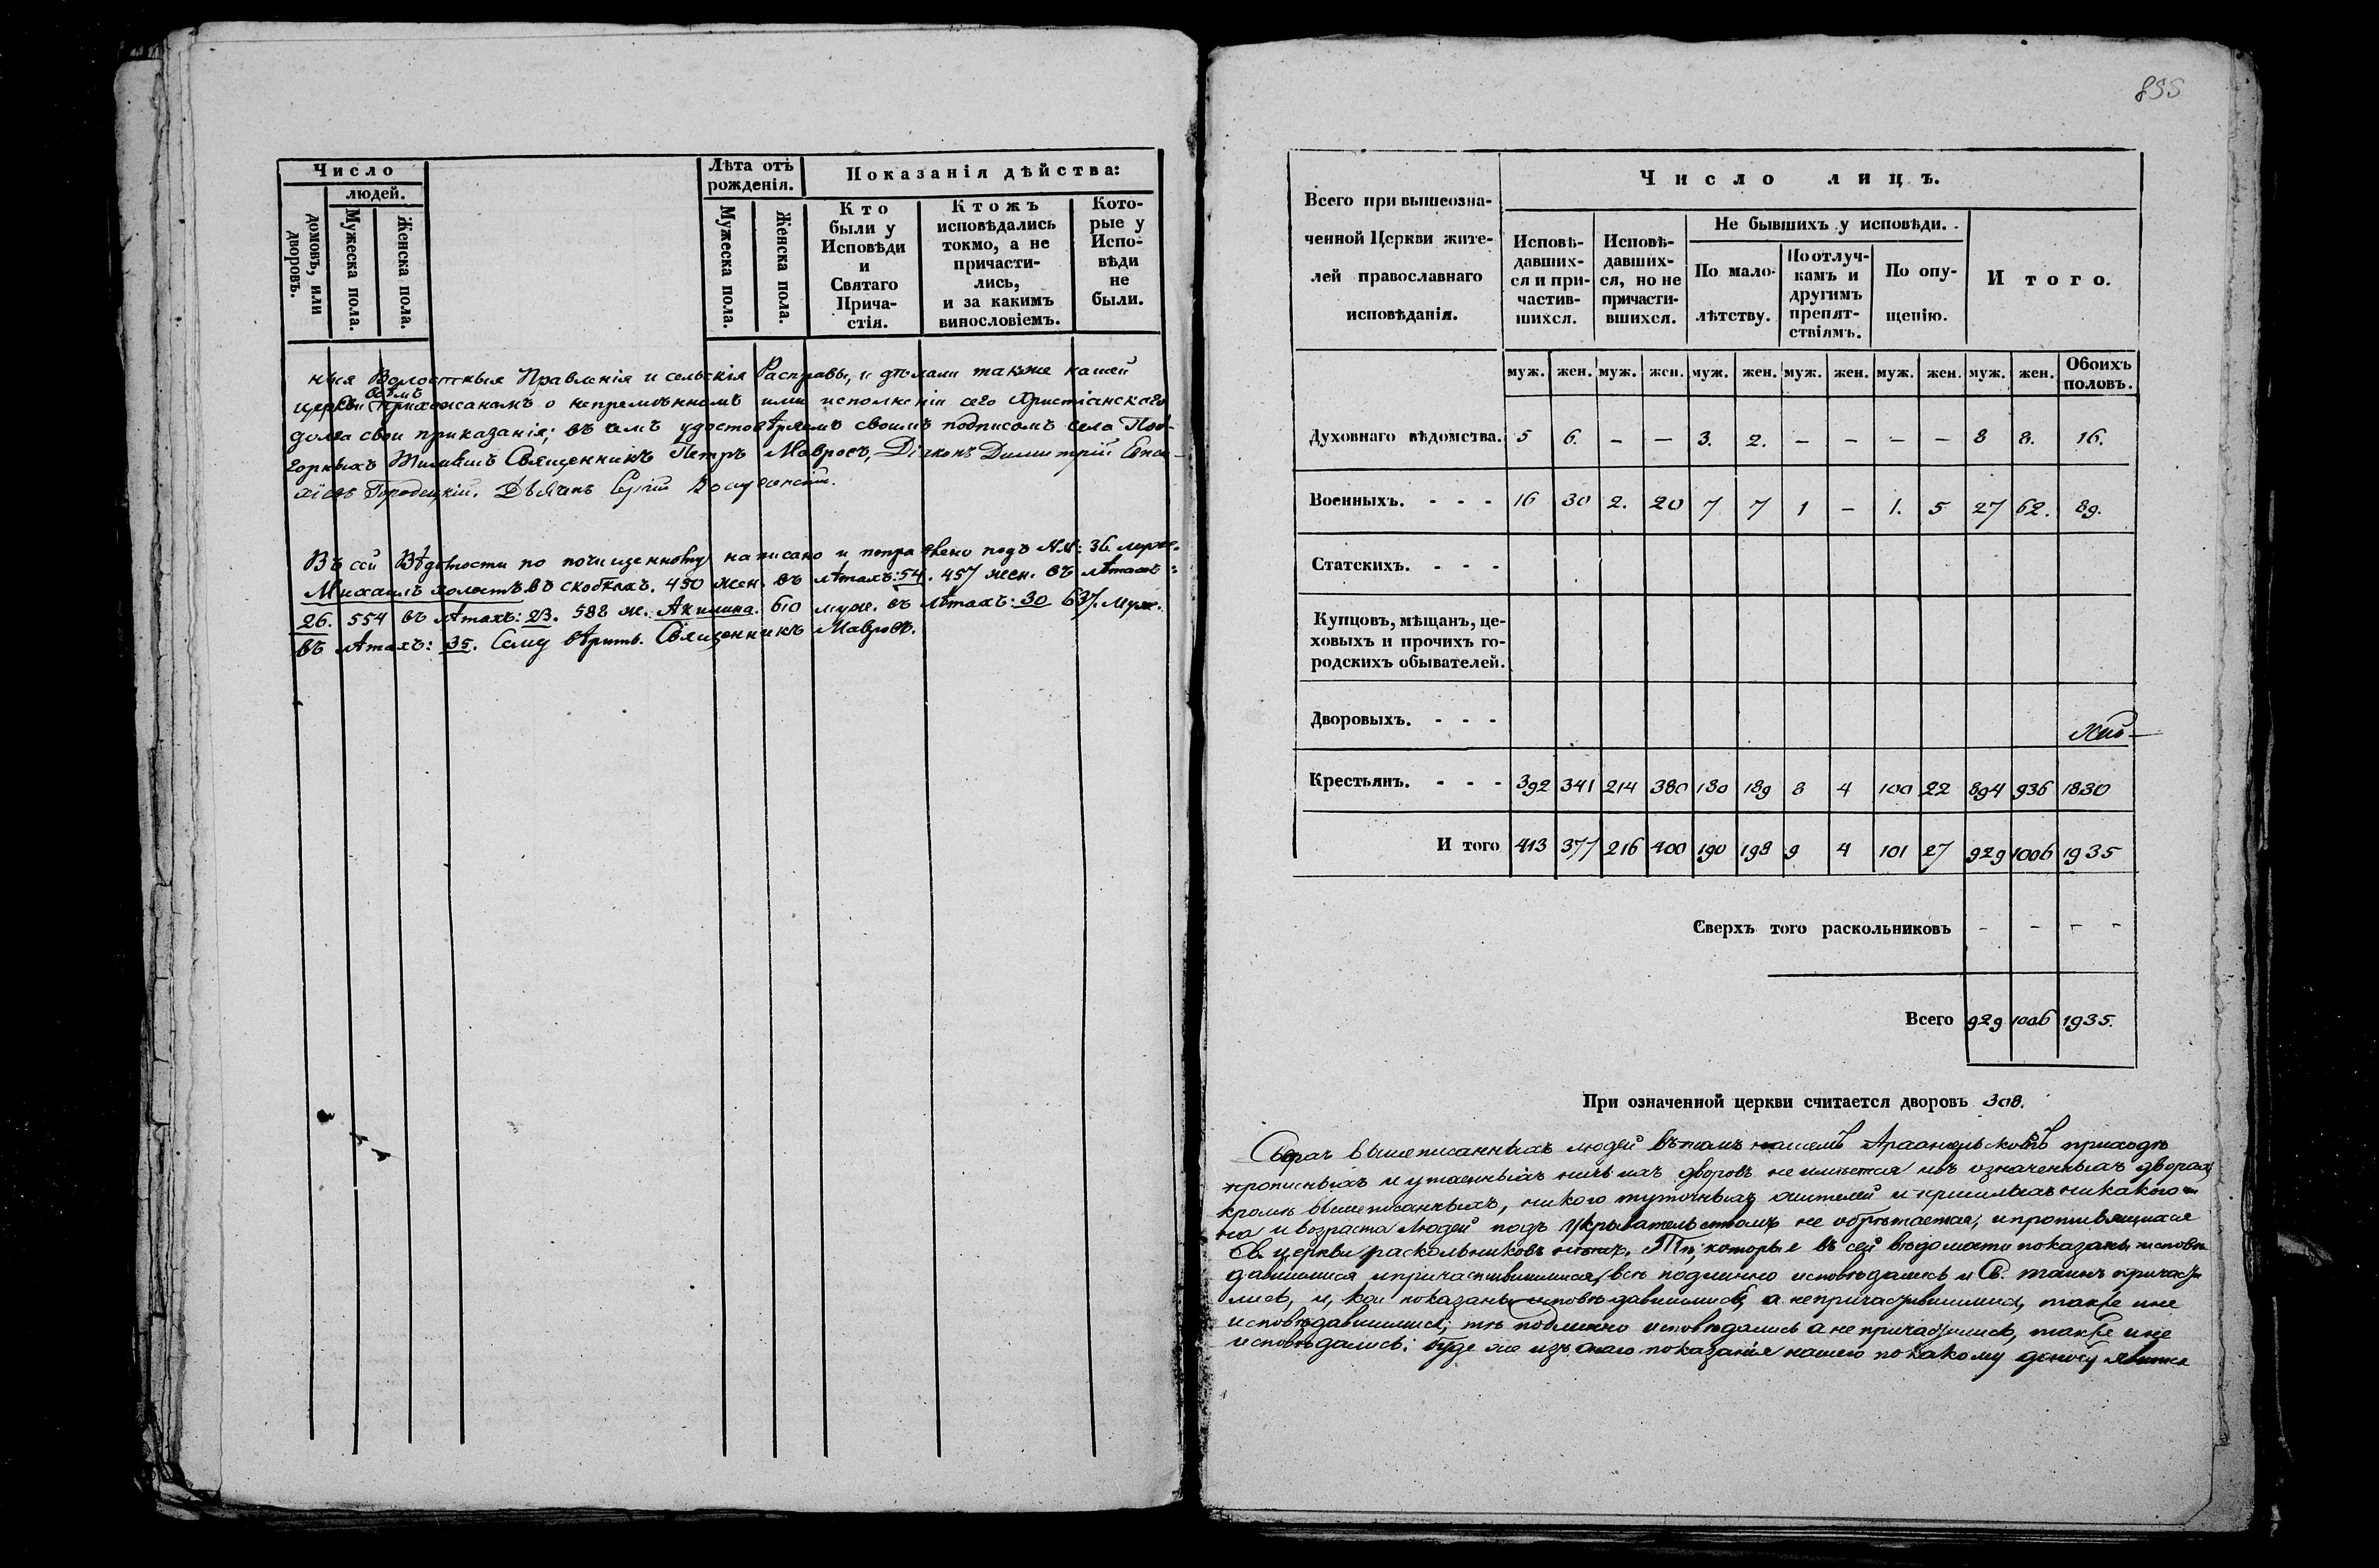 Число
людей.
домовъ, или дворовъ.
Мужеска пола.
Женска пола.
Лѣта отъ
рожденія.
Мужеска пола.
Женска пола.
Показанія дѣйства:
Кто
были у
Исповѣди
и
Святаго
Прича-
стія.
Ктожъ
исповѣдались
токмо, а не
причасти-
лись,
и за какимъ
винословіемъ.
Кото-
рые у
Испо-
вѣди
не
были.
ныя Волостныя Правленія и сельскія Расправы, и дѣлали также нашей
всѣмъ
церкви прихожанамъ о непремѣнномъ ими исполненіи сего Христіанскаго
долга свои приказанія; въ чемъ удостовѣряемъ своимъ подписомъ села Под-
горныхъ Священникъ Петръ Мавровъ, Діаконъ Димитрій
Городецкій. Дьячекъ
Въ сей Вѣдомости по почищенному написано и поправлено подъ №№: 36 муж.
Михаилъ холостъ въ скобкахъ. 450 жен. въ лѣтахъ: 54. 457 жен. въ лѣтахъ:
26. 554 въ лѣтахъ: 23. 588 ж. Акилина. 610 муж. въ лѣтахъ: 30 637. муж.
въ лѣтахъ: 35. Сему вѣрить. Священникъ Мавровъ.
855
Всего при вышеозна-
ченной Церкви жите-
лей православнаго
исповѣданія.
Число лицъ.
Исповѣ-
давших-
ся и при-
частив-
шихся.
Исповѣ-
давших-
ся, но не
причасти-
вшихся.
Не бывшихъ у исповѣди.
По мало-
лѣтству.
По отлуч-
камъ и
другимъ
препят-
ствіямъ.
По опу-
щенію.
Итого.
муж. жен. муж. жен. муж. жен. муж. жен. муж. жен. муж. жен. Обоихъ половъ.
Духовнаго вѣдомства. 5 6. – – 3. 2. – – – – 8 8. 16.
Военныхъ. - - - 16 30 2. 20 7 7 1 – 1. 5 27 62. 89.
Статскихъ. - - -
Купцовъ, мѣщанъ, це-
ховыхъ и прочихъ го-
родскихъ обывателей.
Дворовыхъ. - - -
Крестьянъ. - - - 392 341 214 380 180 189 8 4 100 22 894 936 1830
И того 413 377 216 400 190 198 9 4 101 27 929 1006 1935
Сверхъ того раскольниковъ – – – –
Всего 929 1006 1935.
При означенной церкви считается дворовъ 308.
Сверхъ вышеписанныхъ людей въ томъ нашемъ Архангельскомъ приходѣ
прописныхъ и утаенныхъ ничьихъ дворовъ не имѣется и въ означенныхъ дворахъ
кромѣ вышеписанныхъ, никого туточныхъ жителей и пришлыхъ никакого
и возраста людей подъ укрывательствомъ не обрѣтается, и противящихся
Св. церкви раскольниковъ нѣтъ. Тѣ, которые въ сей вѣдомости показаны исповѣ-
давшимися и причастившимися, всѣ подлинно исповѣдались и Св. таинъ причасти-
лись, и, кои показаны исповѣдавшимися, а непричастившимися, также и не
исповѣдавшимися; тѣ подлинно исповѣдались а не причастились, также и не
исповѣдались: буде же изъ онаго показанія нашего по какому доносу явится